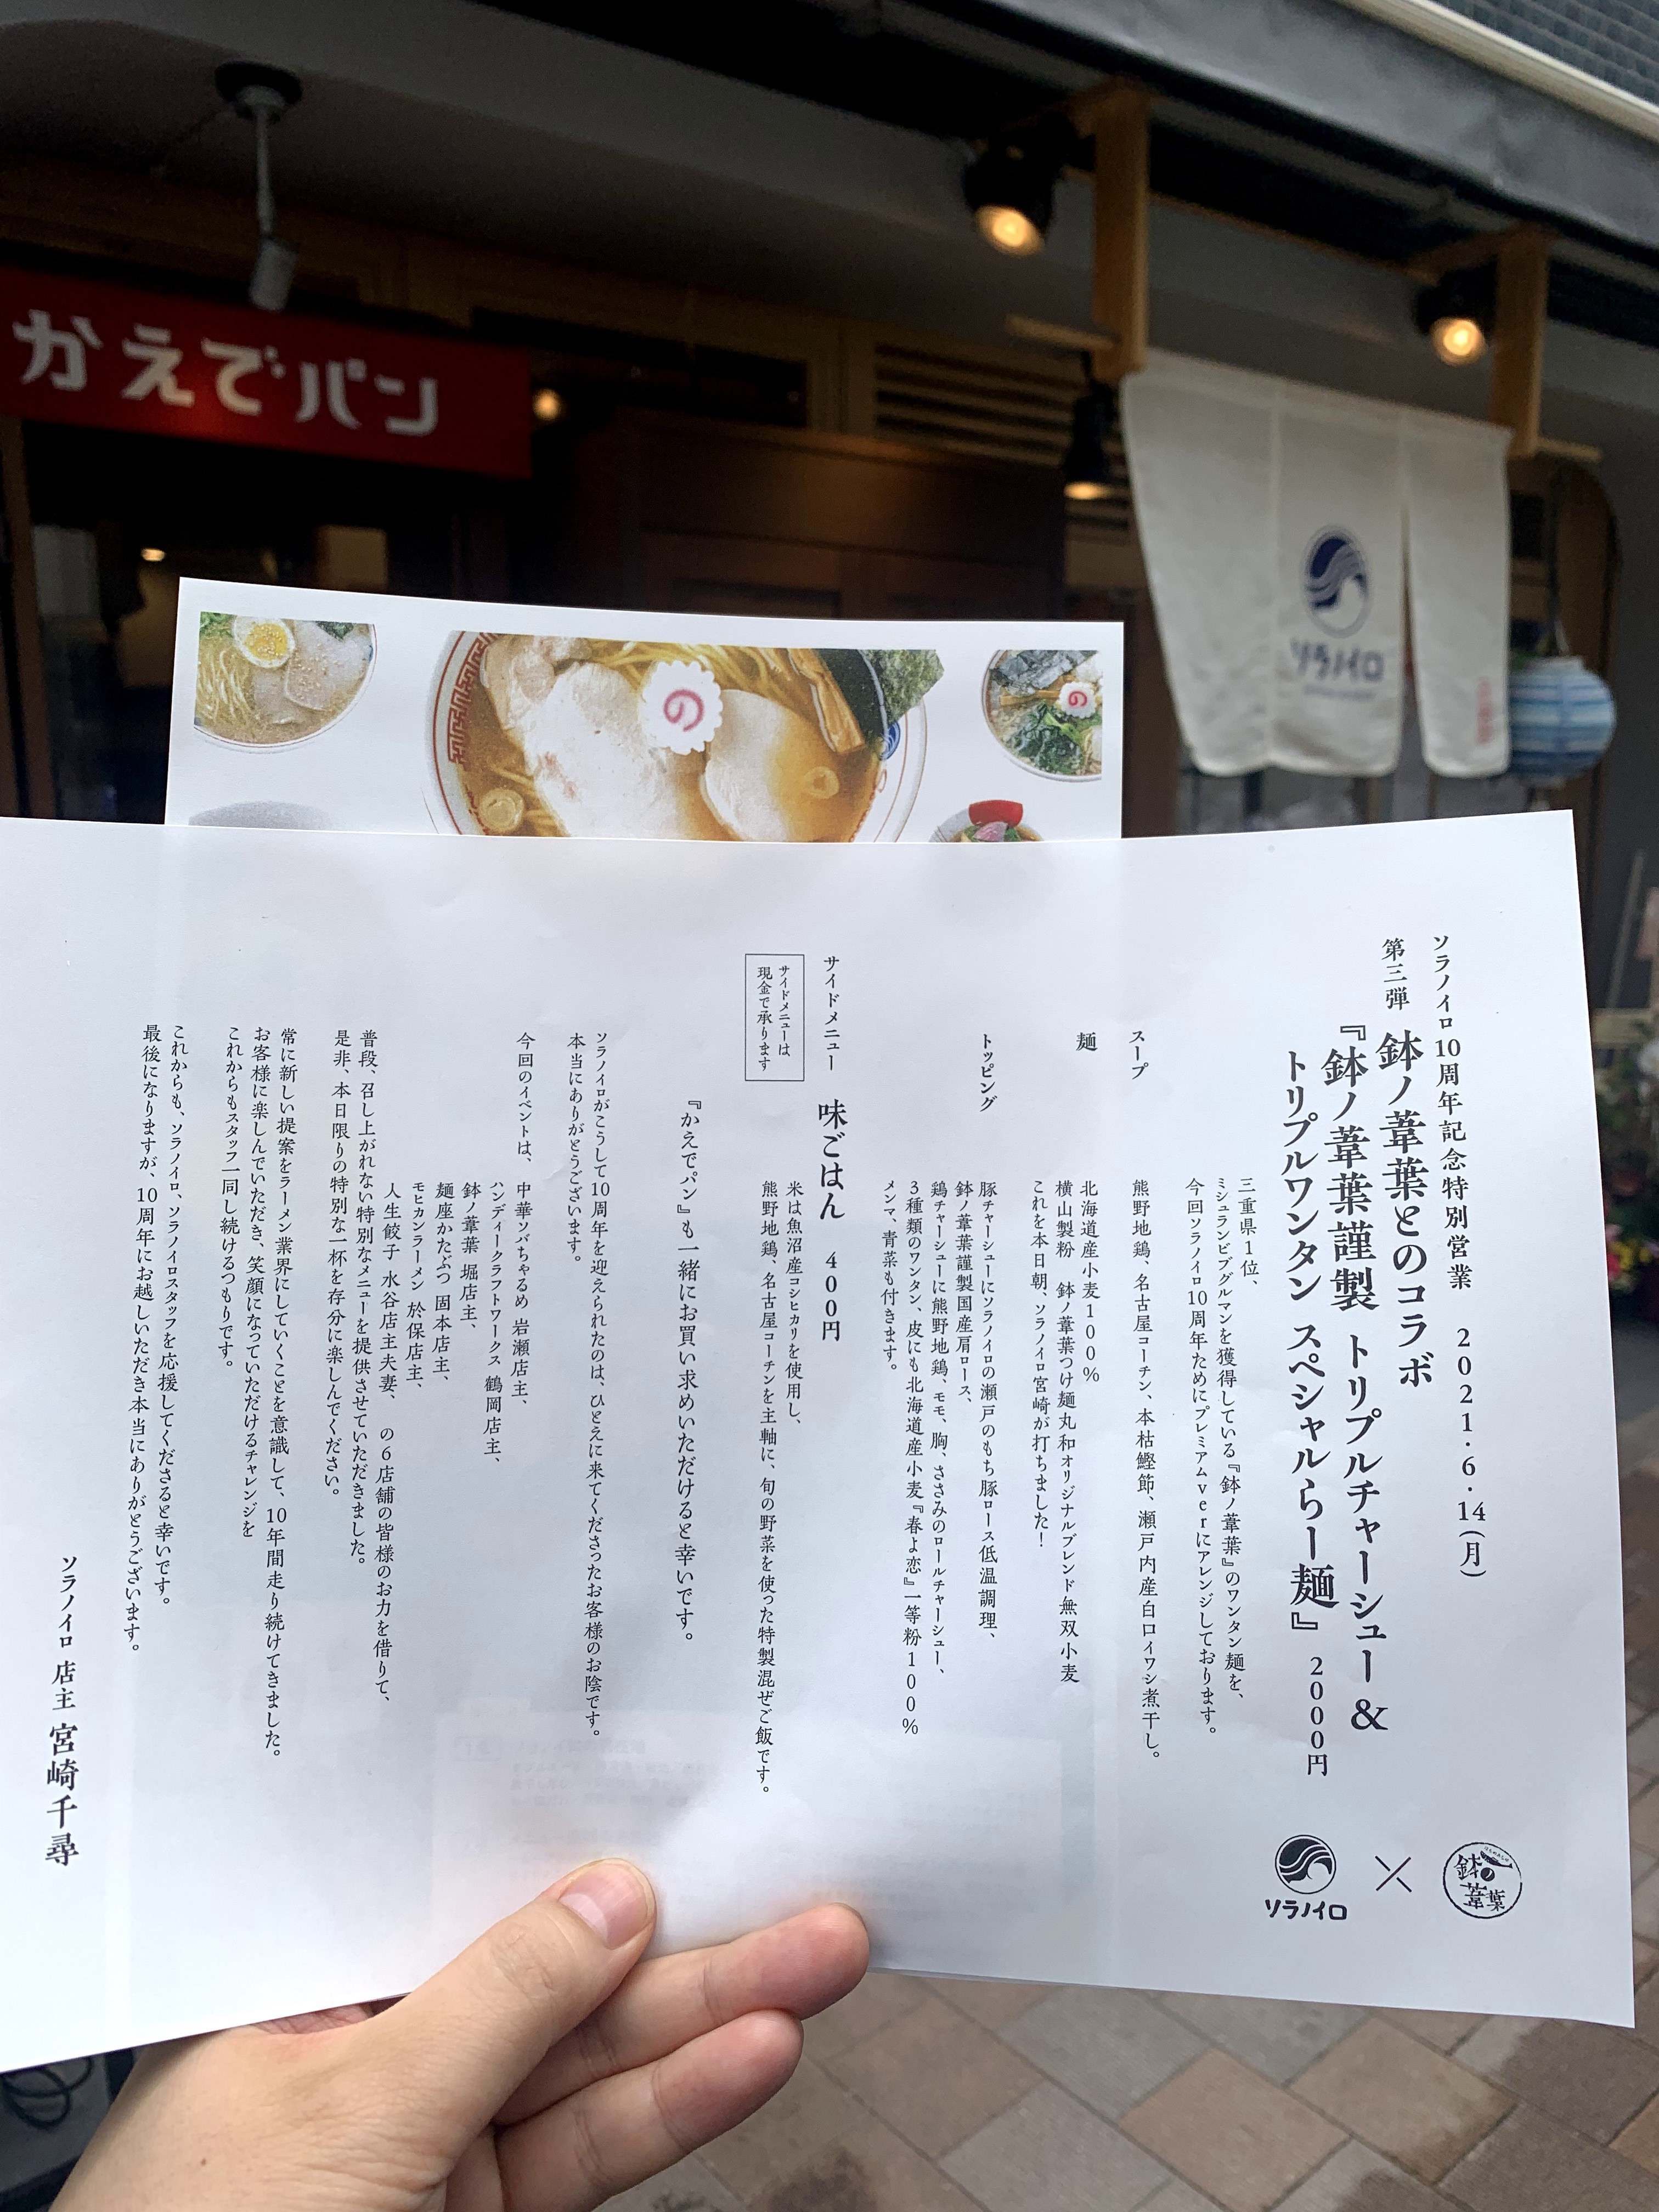 かえでパン
ソラノイロ
の
の
ソラノイロ10周年記念特別営業 2021.6.14(月)
第三弾 鉢ノ葦葉とのコラボ
『鉢ノ葦葉謹製 トリプルチャーシュー&
トリプルワンタン スペシャルらー麺』 2000円
三重県1位、
ミシュランビブグルマンを獲得している『鉢ノ葦葉』のワンタン麺を、
今回ソラノイロ10周年ためにプレミアムverにアレンジしております。
スープ 熊野地鶏、名古屋コーチン、本枯鰹節、瀬戸内産白口イワシ煮干し。
麺 北海道産小麦100%
横山製粉 鉢ノ葦葉つけ麺丸和オリジナルブレンド無双小麦
これを本日朝、ソラノイロ宮崎が打ちました！
トッピング 豚チャーシューにソラノイロの瀬戸のもち豚ロース低温調理、
鉢ノ葦葉謹製国産肩ロース、
鶏チャーシューに熊野地鶏、モモ、胸、ささみのロールチャーシュー、
3種類のワンタン、皮にも北海道産小麦『春よ恋』一等粉100%
メンマ、青菜も付きます。
サイドメニュー 味ごはん 400円
サイドメニューは
現金で承ります
米は魚沼産コシヒカリを使用し、
熊野地鶏、名古屋コーチンを主軸に、旬の野菜を使った特製混ぜご飯です。
『かえでパン』も一緒にお買い求めいただけると幸いです。
ソラノイロがこうして10周年を迎えられたのは、ひとえに来てくださったお客様のお陰です。
本当にありがとうございます。
今回のイベントは、 中華ソバちゃるめ 岩瀬店主、
ハンディークラフトワークス 鶴岡店主、
鉢ノ葦葉 堀店主、
麺座かたぶつ 固本店主、
モヒカンラーメン 於保店主、
人生餃子 水谷店主夫妻、 の6店舗の皆様のお力を借りて、
普段、召し上がれない特別なメニューを提供させていただきました。
是非、本日限りの特別な一杯を存分に楽しんでください。
常に新しい提案をラーメン業界にしていくことを意識して、10年間走り続けてきました。
お客様に楽しんでいただき、笑顔になっていただけるチャレンジを
これからもスタッフ一同し続けるつもりです。
これからも、ソラノイロ、ソラノイロスタッフを応援してくださると幸いです。
最後になりますが、10周年にお越しいただき本当にありがとうございます。
ソラノイロ 店主 宮崎千尋
ソラノイロ
×
鉢の葦葉